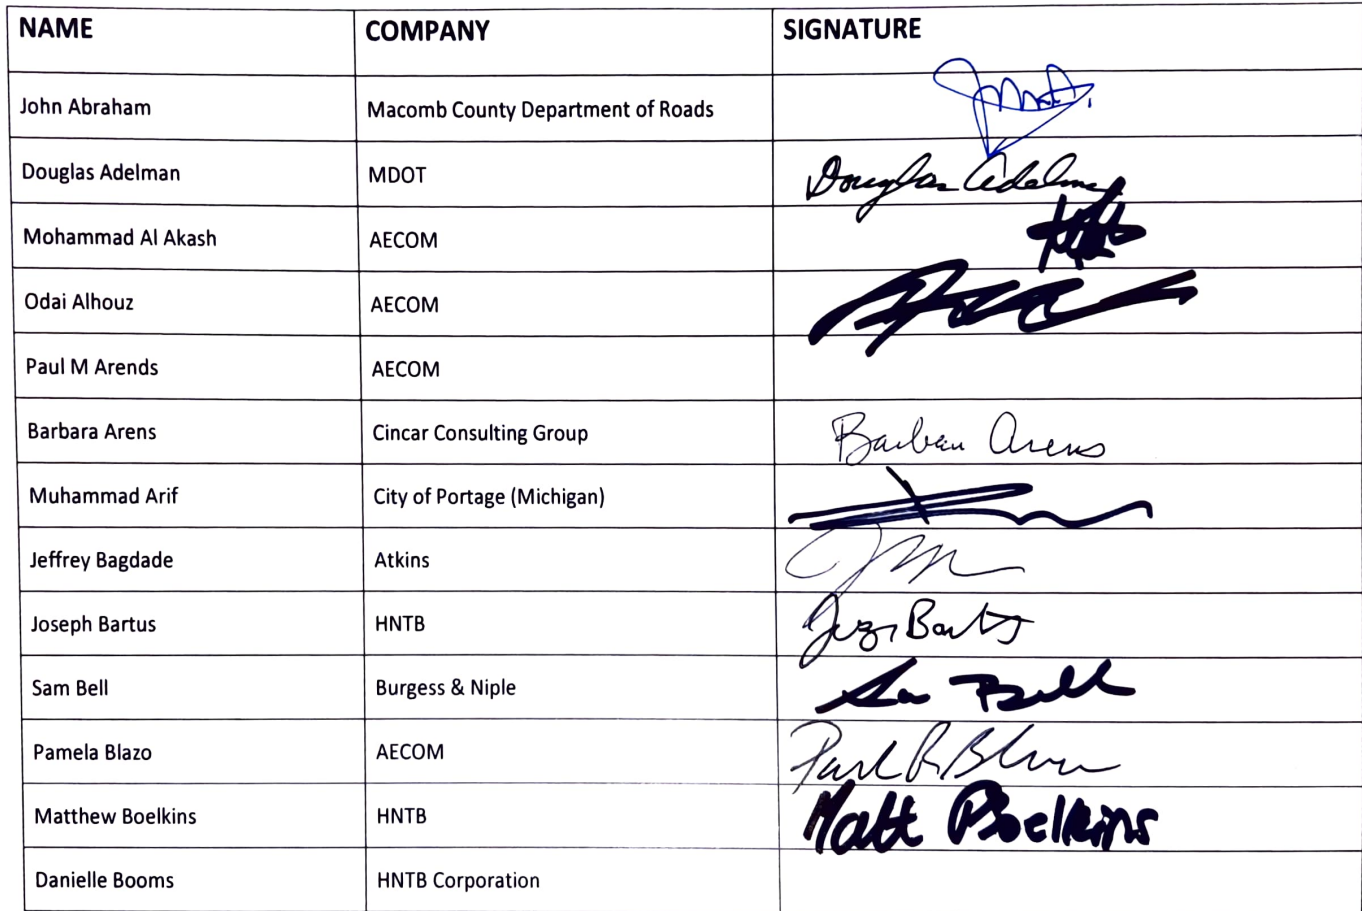 NAME COMPANY SIGNATURE
John Abraham Macomb County Department of Roads
Douglas Adelman MDOT Douglas Adelman
Mohammad Al Akash AECOM
Odai Alhouz AECOM
Paul M Arends AECOM
Barbara Arens Cincar Consulting Group Barbara Arens
Muhammad Arif City of Portage (Michigan)
Jeffrey Bagdade Atkins
Joseph Bartus HNTB
Sam Bell Burgess & Niple Sam Bell
Pamela Blazo AECOM
Matthew Boelkins HNTB Matt Boelkins
Danielle Booms HNTB Corporation